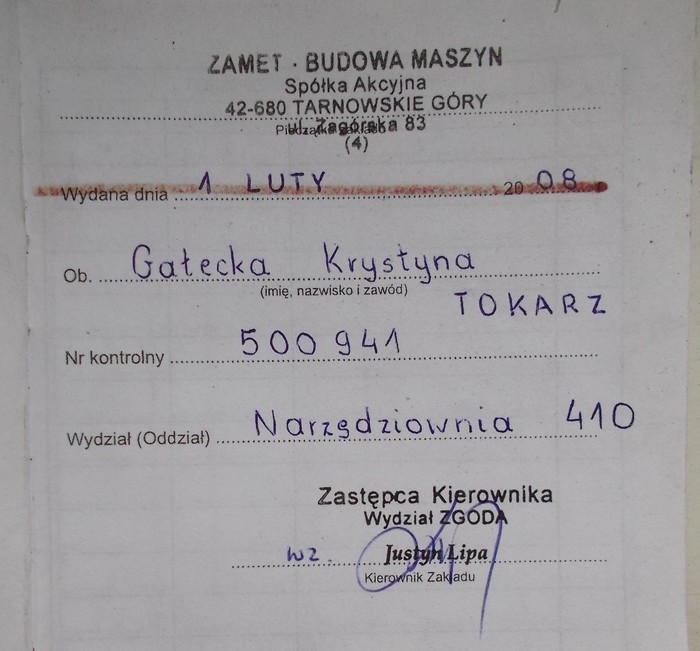 ZAMET - BUDOWA MASZYN
Spółka Akcyjna
42-680 TARNOWSKIE GÓRY
ul. Zagórska 83
Pieczątka zakładu
(4)
Wydana dnia 1 LUTY 2008
Ob. Gałecka Krystyna
(imię, nazwisko i zawód)
TOKARZ
Nr kontrolny 500941
Wydział (Oddział) Narzędziownia 410
Zastępca Kierownika
Wydział ZGODA
wz. Justyn Lipa
Kierownik Zakładu